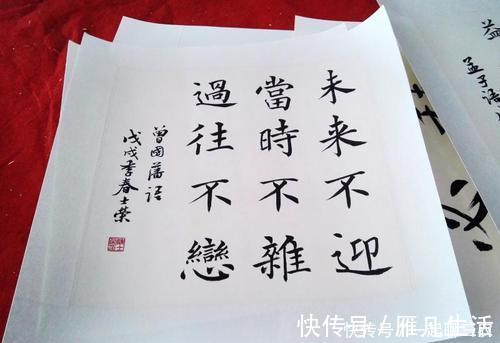 未来不迎
當時不雜
過往不戀
曾國藩語
戊戌季春士榮
益
孟子語
快传号／雁凡生活